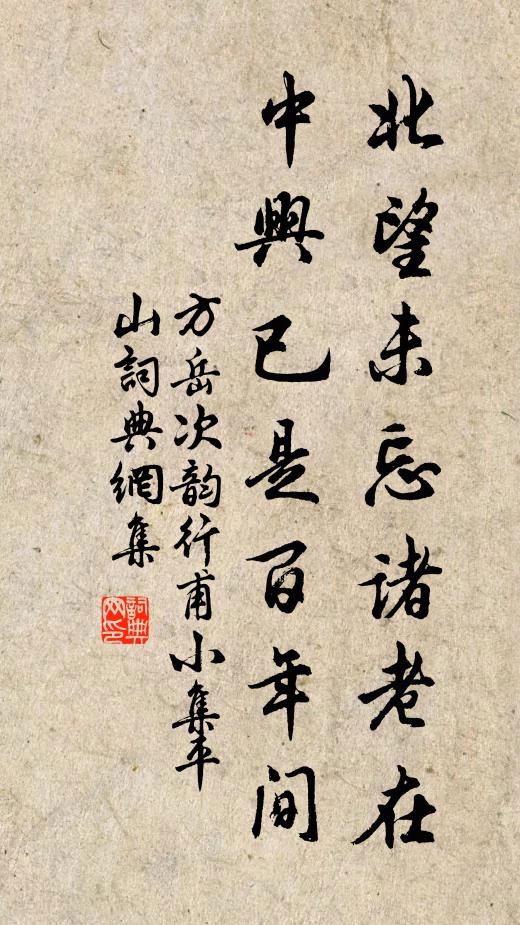 北望未忘诸老在
中興已是百年间
方岳次韵行甫小集平
山詞典網集
詞典
网印